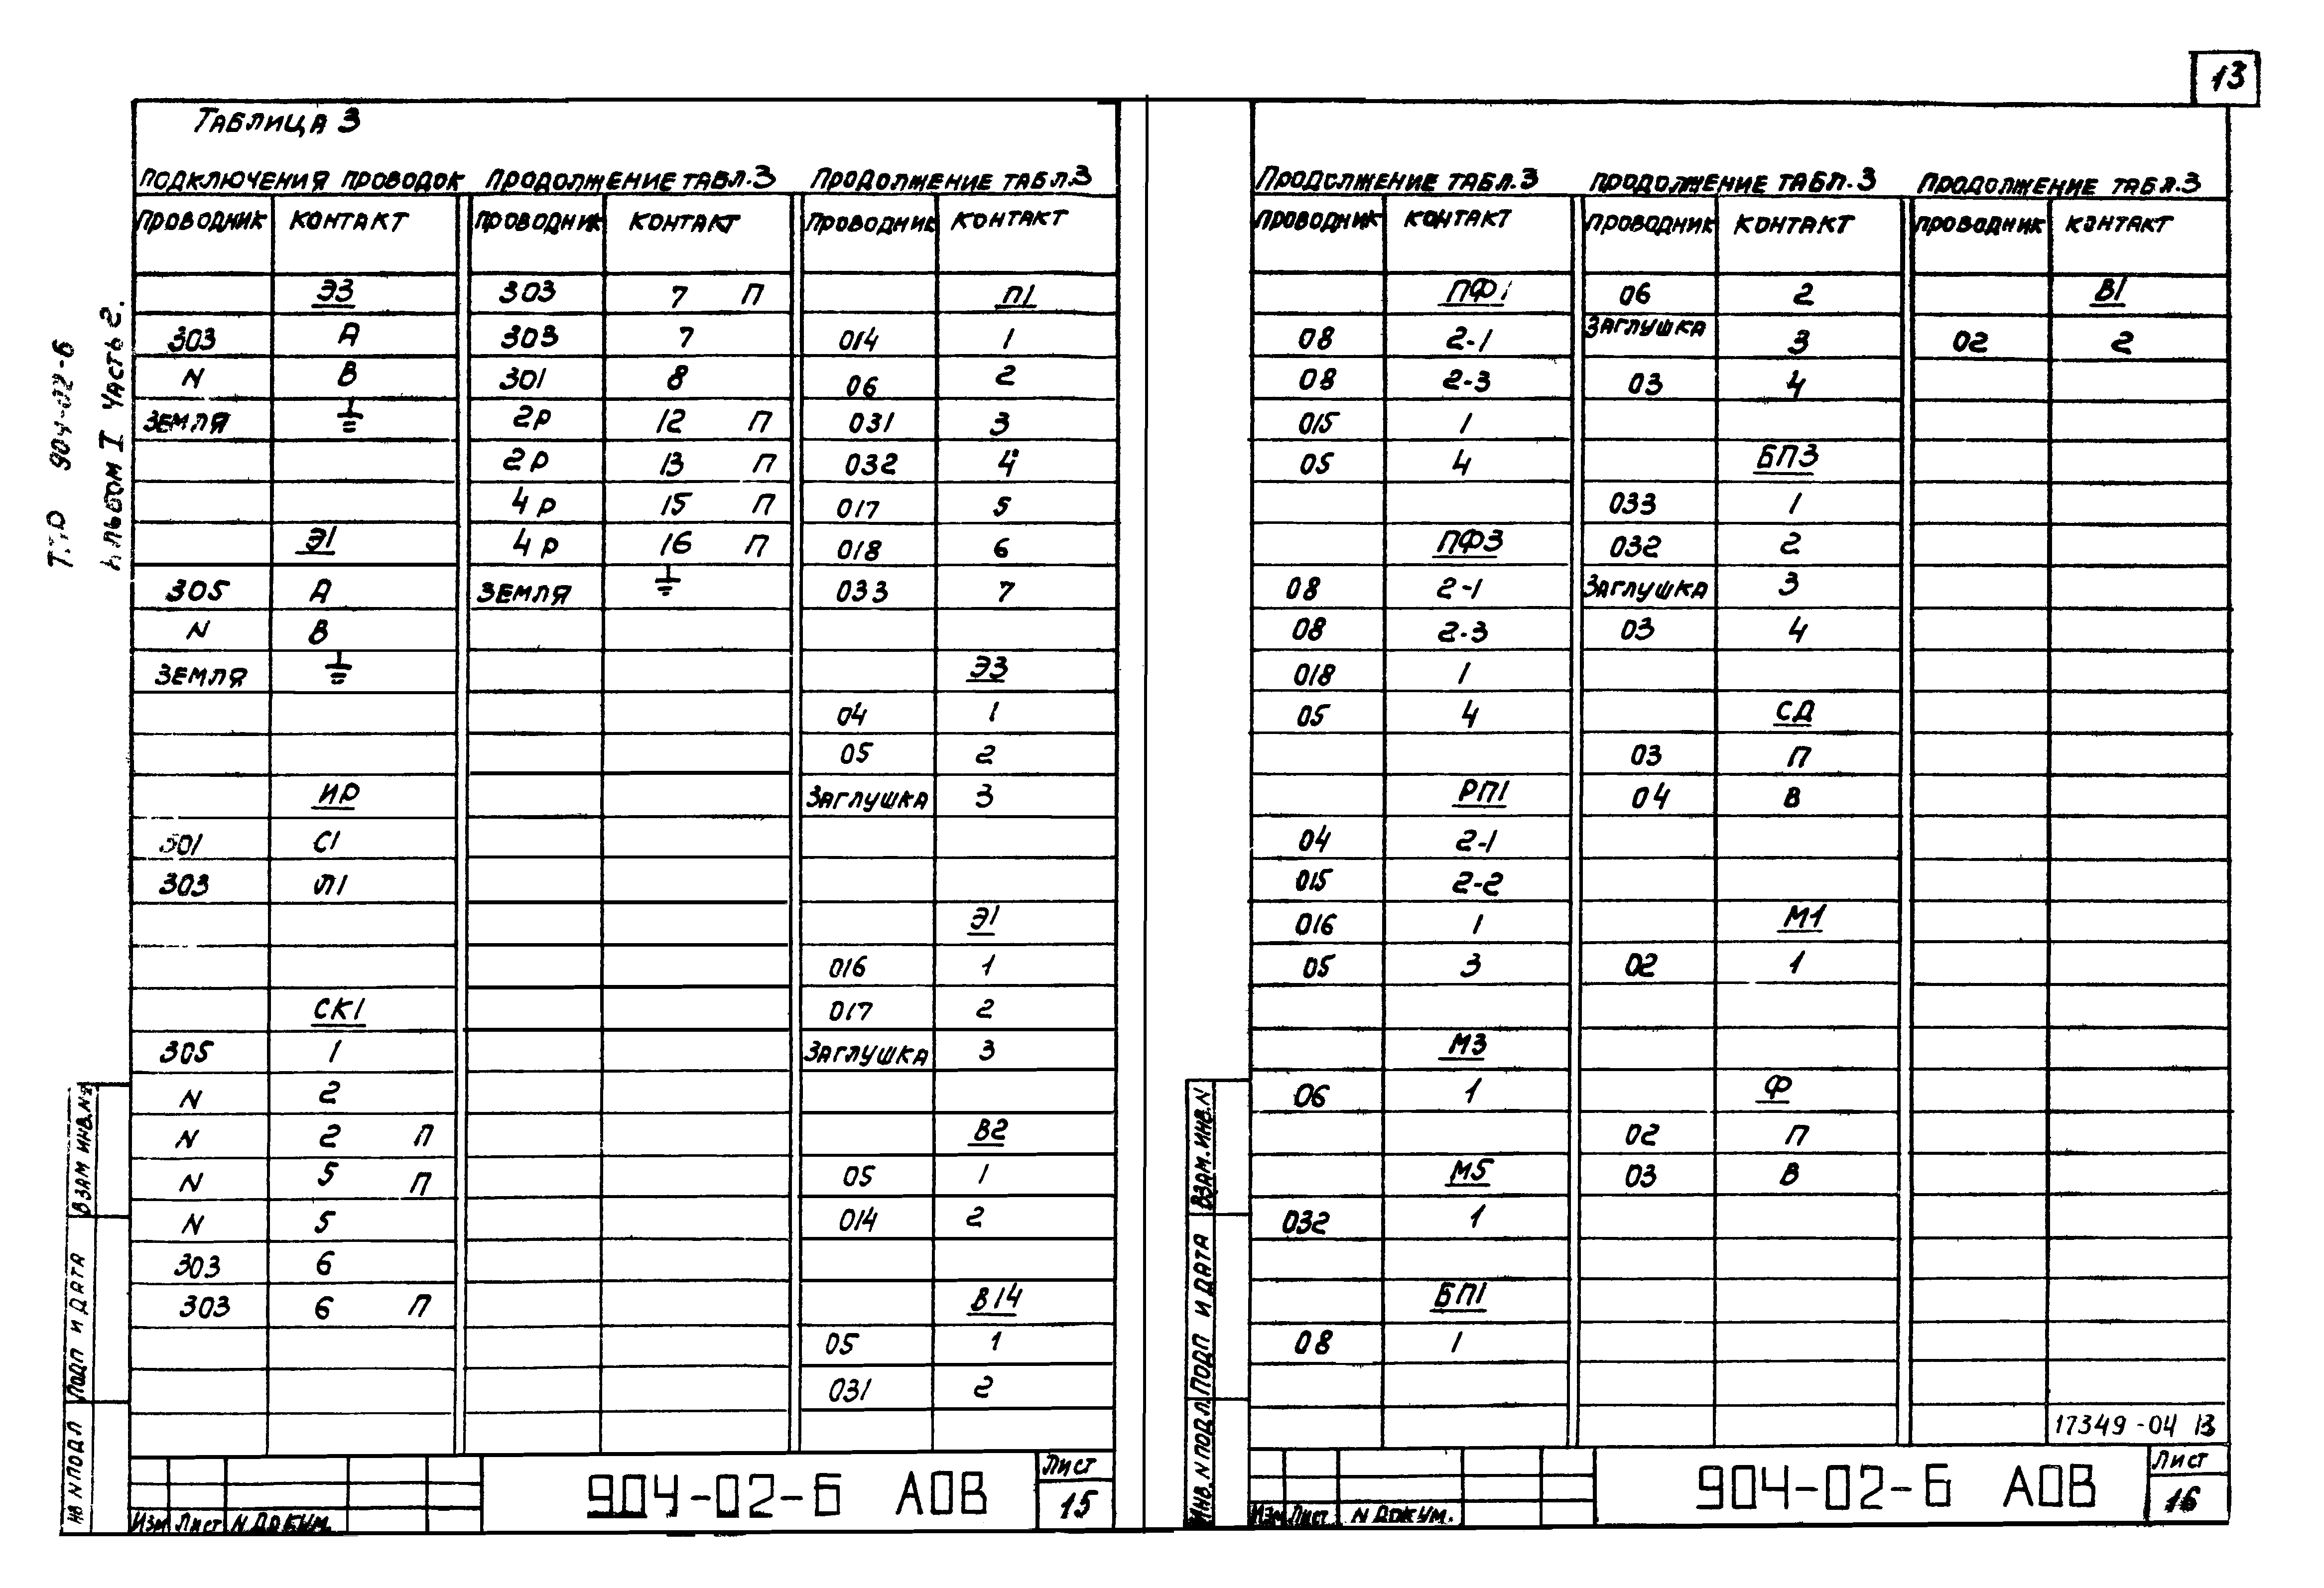 13
Таблица 3
Подключения проводок
Проводник Контакт
ЭЗ
303 А
N В
Земля ⏚
Э1
305 А
N В
Земля ⏚
ИР
301 С1
303 Л1
СК1
305 1
N 2
N 2 П
N 5 П
N 5
303 6
303 6 П
Продолжение табл.3
Проводник Контакт
303 7 П
303 7
301 8
2Р 12 П
2Р 13 П
4Р 15 П
4Р 16 П
Земля ⏚
Продолжение табл.3
Проводник Контакт
П1
014 1
06 2
031 3
032 4
017 5
018 6
033 7
ЭЗ
04 1
05 2
Заглушка 3
Э1
016 1
017 2
Заглушка 3
В2
05 1
014 2
В14
05 1
031 2
Т.Р 904-02-6
Альбом I Часть 2.
Взам инв.№
Подп и дата
Инв N подл
Изм Лист N докум.
904-02-6 АОВ
Лист
15
Продолжение табл.3
Проводник Контакт
ПФ1
08 2-1
08 2-3
015 1
05 4
ПФ3
08 2-1
08 2-3
018 1
05 4
РП1
04 2-1
015 2-2
016 1
05 3
М3
06 1
М5
032 1
БП1
08 1
Продолжение табл.3
Проводник Контакт
06 2
Заглушка 3
03 4
БП3
033 1
032 2
Заглушка 3
03 4
СД
03 П
04 В
М1
02 1
Ф
02 П
03 В
Продолжение табл.3
Проводник Контакт
В1
02 2
17349-04 13
Взам.инв.N
Подп и дата
Инв.N подл
Изм Лист N докум.
904-02-6 АОВ
Лист
16